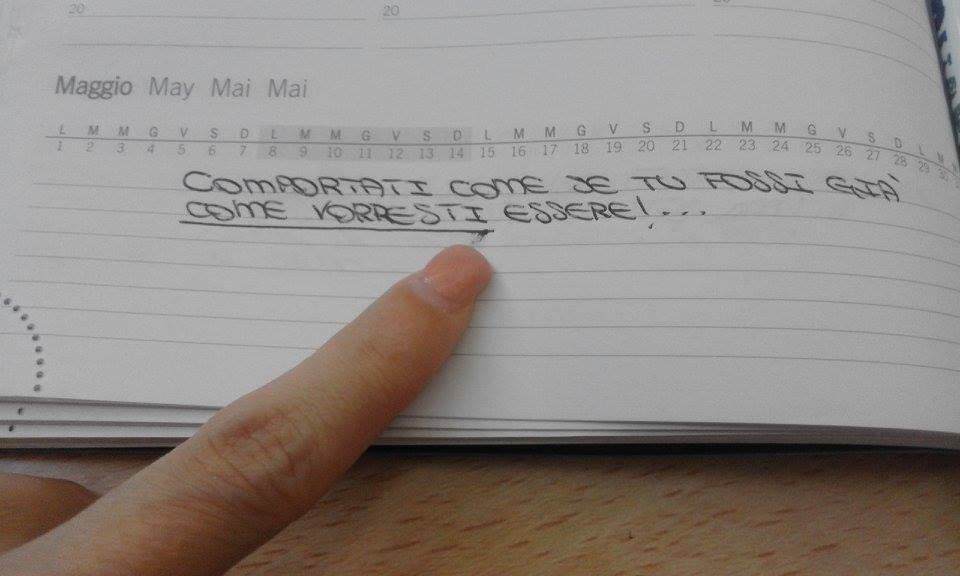 20 20 20
Maggio May Mai Mai
L M M G V S D L M M G V S D L M M G V S D L M M G V S D L M
1 2 3 4 5 6 7 8 9 10 11 12 13 14 15 16 17 18 19 20 21 22 23 24 25 26 27 28 29 30
COMPORTATI COME SE TU FOSSI GIÀ
COME VORRESTI ESSERE!...